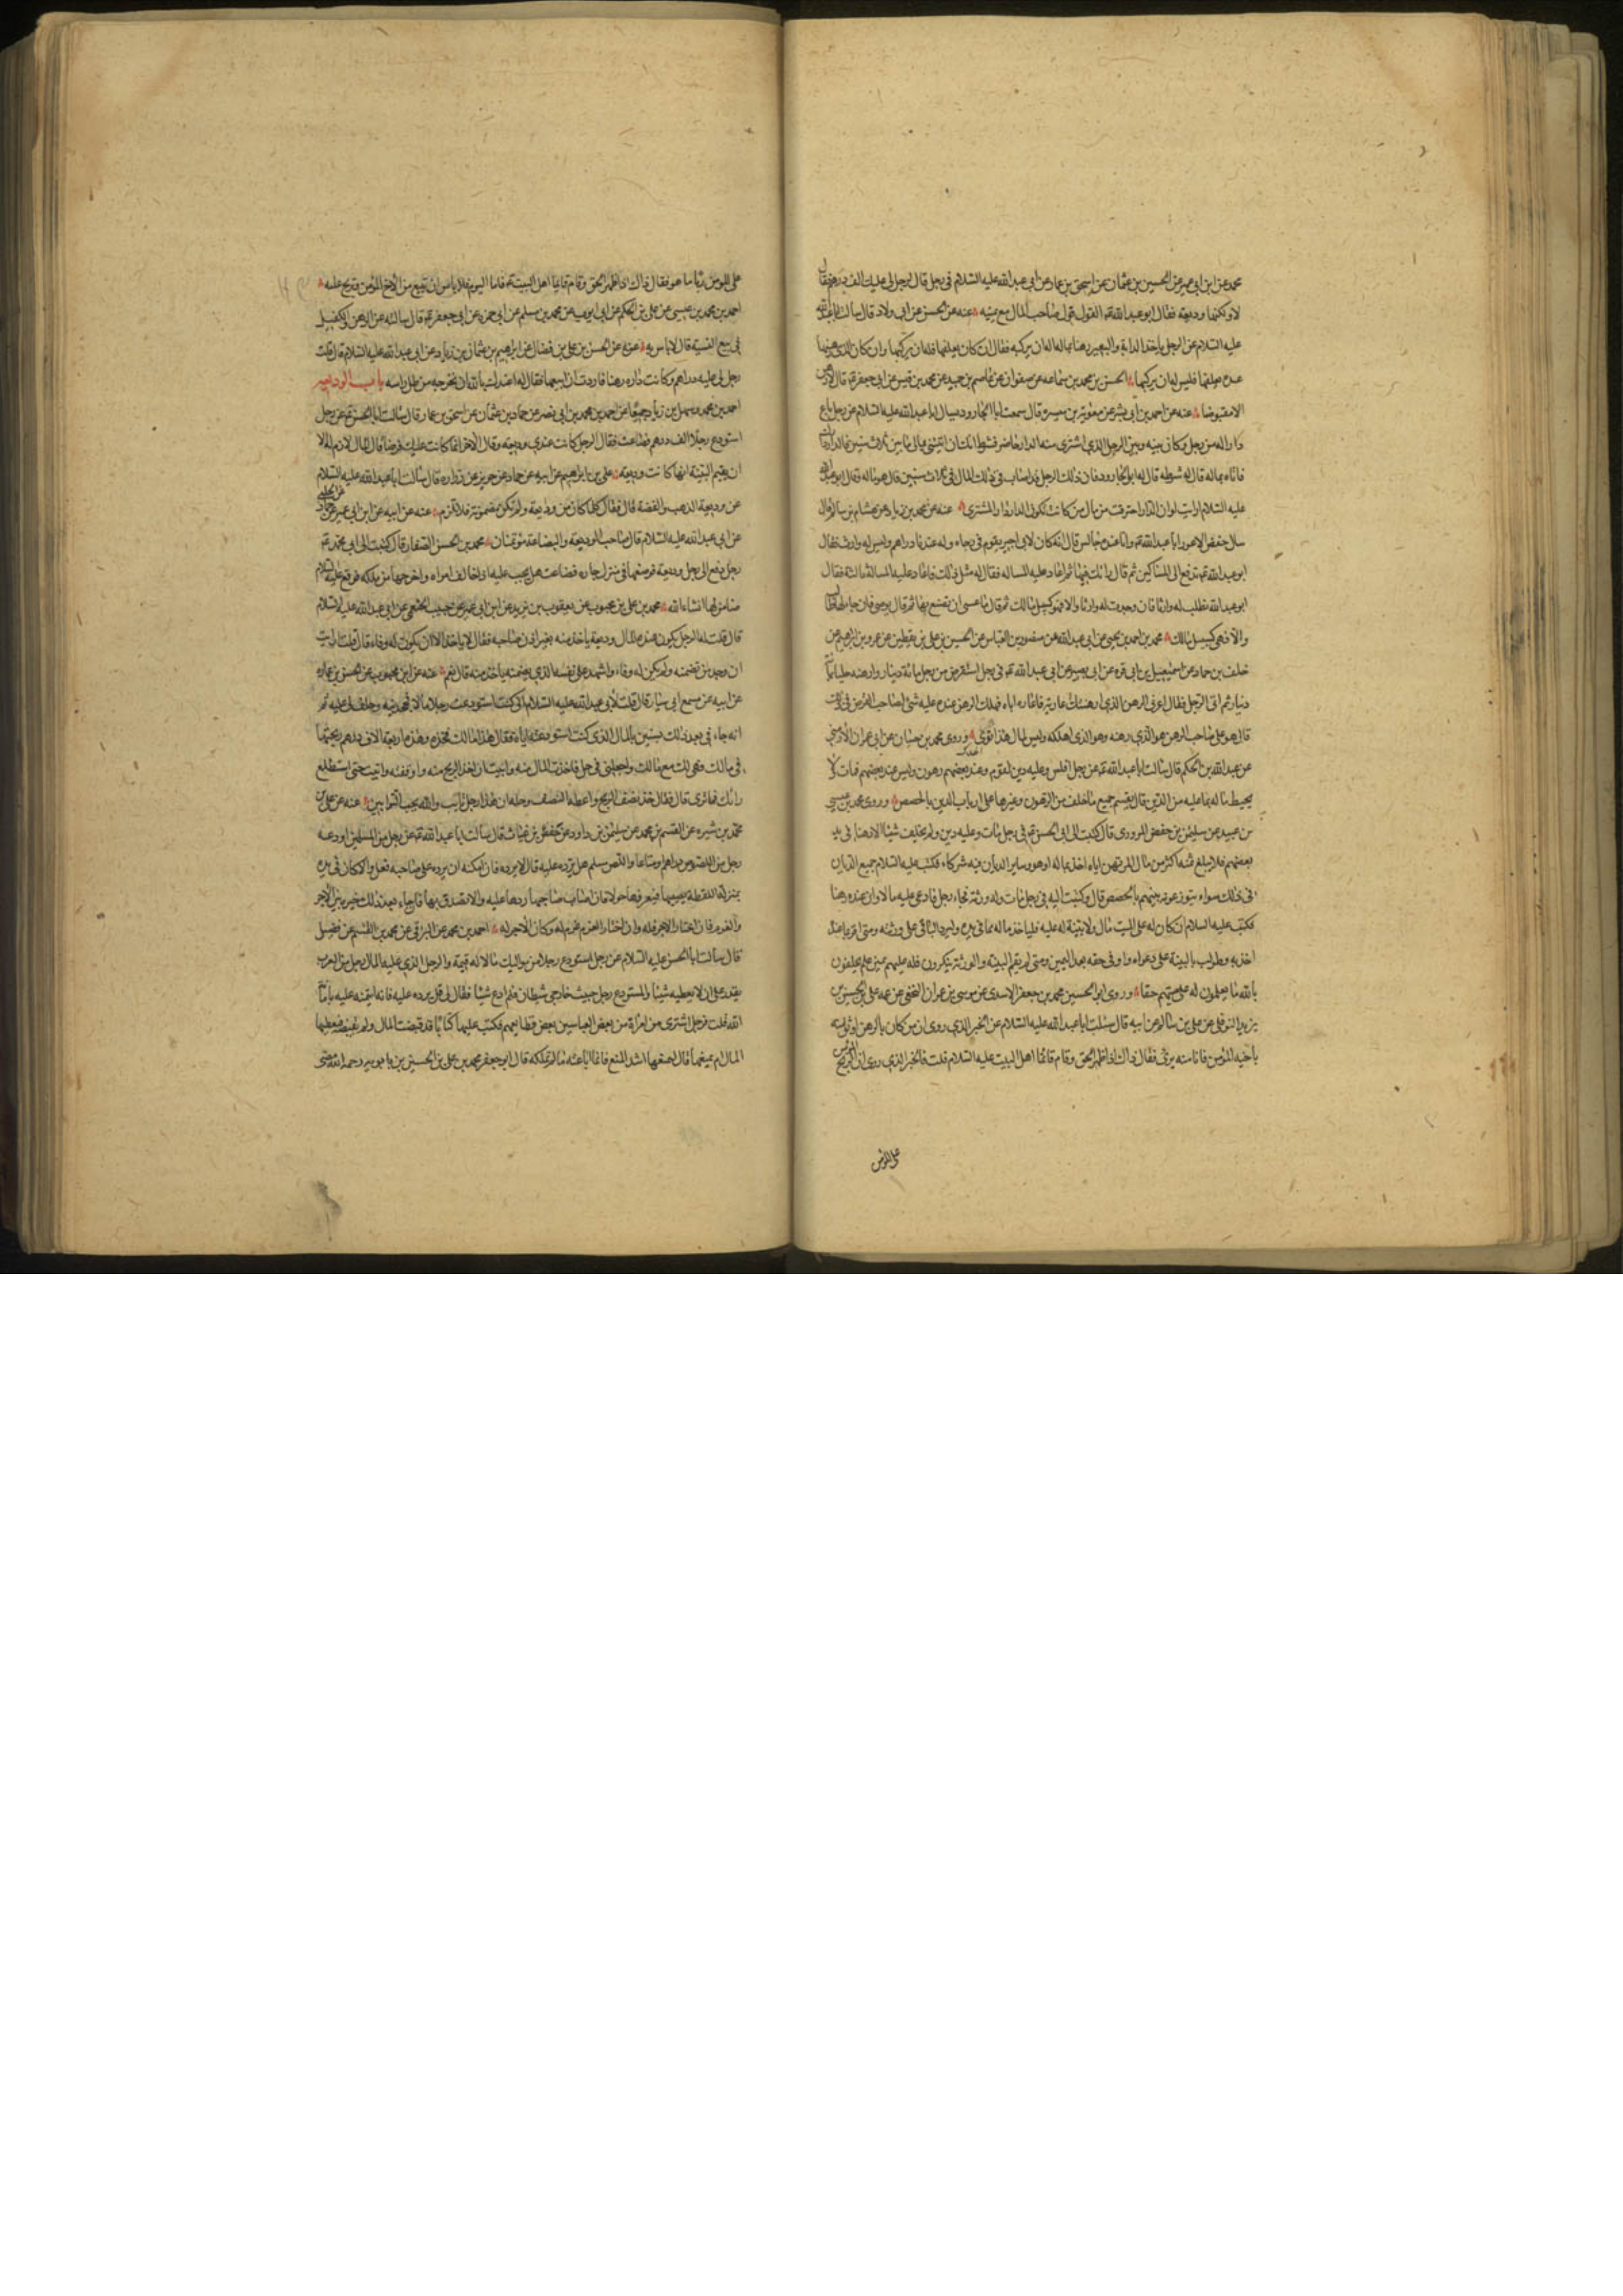 محمد عن ابن ابي عمير عن الحسين بن عثمان عن اسحق بن عمار عن ابي عبد الله عليه السلام في رجل قال لرجل لي عليك الف درهم فقال
لا ولكنها وديعة فقال ابو عبد الله ع القول قول صاحب المال مع يمينه عنه عن الحسن عن ابي ولاد قال سالت ابا عبد الله
عليه السلام عن الرجل ياخذ الدابة والبعير رهنا بماله اله ان يركبه فقال ان كان يعلفها فله ان يركبها وان كان الذي رهنها
عنده يعلفها فليس له ان يركبها الحسن بن محمد بن سماعه عن صفوان عن عاصم بن حميد عن محمد بن قيس عن ابي جعفر ع قال لا رهن
الا مقبوضا عنه عن احمد بن ابي بشر عن معوية بن ميسرة قال سمعت ابا الجارود يسال ابا عبد الله عليه السلام عن رجل باع
دارا له من رجل وكان بينه وبين الرجل الذي اشترى منه الدار حاضر فشرط انك ان اتيتني بمالي ما بين ثلاث سنين فالدار دارك
فاتاه بماله قال له شرطه قال له ابو الجارود فان ذلك الرجل قد اصاب في ذلك المال في ثلاث سنين قال هو ماله فقال ابو عبد الله
عليه السلام ارايت لو ان الدار احترقت من مال من كانت تكون الدار دار المشتري عنه عن محمد بن زياد عن هشام بن سالم قال
سال حفص الاعور ابا عبد الله ع وانا عنده جالس قال انه كان لابي اجير يقوم في رحاه وله عندنا دراهم وليس له وارث فقال
ابو عبد الله ع تدفع الى المساكين ثم قال رايك فيها ثم اعاد عليه المساله فقال له مثل ذلك فاعاد عليه المسالة ثالثة فقال
ابو عبد الله تطلب له وارثا فان وجدت له وارثا والا فهو كسبيل مالك ثم قال ما عسى ان تصنع بها ثم قال توصي فان جاء لها طالب
والا فهي كسبيل مالك محمد بن احمد بن يحيى عن ابي عبد الله عن منصور بن العباس عن الحسين بن علي بن يقطين عن عمرو بن ابراهيم عن
خلف بن حماد عن اسمعيل بن ابي قره عن ابي بصير عن ابي عبد الله ع في رجل استقرض من رجل مائة دينار وارهنه حليا بمائة
دينار ثم اتى الرجل فقال اعرني الرهن الذي ارهنتك عارية فاعاره اياه فهلك الرهن عنده عليه شئ لصاحب القرض في ذلك
قال هو على صاحب الرهن هو الذي رهنه وهو الذي اهلكه وليس لمال هذا توى وروى محمد بن حسان عن ابي عمران الارمني
عن عبد الله بن الحكم قال سالت ابا عبد الله ع عن رجل افلس وعليه دين لقوم وعند بعضهم رهون وليس عند بعضهم فمات لا
يحيط ماله بما عليه من الدين قال يقسم جميع ما خلف من الرهون وغيرها على ارباب الدين بالحصص وروى محمد بن عيسى
بن عبيد عن سليمن بن حفص المروزي قال كتبت الى ابي الحسن ع في رجل مات وعليه دين ولم يخلف شيئا الا رهنا في يد
بعضهم فلا يبلغ ثمنه اكثر من مال المرتهن اياه اخذ بماله او هو وساير الديان فيه شركاء فكتب عليه السلام جميع الديان
في ذلك سواء يتوزعونه بينهم بالحصص قال وكتبت اليه في رجل مات وله ورثة فجاء رجل فادعى عليه مالا وان عنده رهنا
فكتب عليه السلام ان كان له على الميت مال ولا بينة له عليه فلياخذ ماله بما في يده وليرد الباقي على ورثته ومتى اقر بما عنده
اخذ به وطولب بالبينة على دعواه واوفى حقه بعد اليمين ومتى لم يقم البينة والورثة ينكرون فله عليهم يمين علم يحلفون
بالله ما يعلمون له على ميتهم حقا وروى ابو الحسين محمد بن جعفر الاسدي عن موسى بن عمران النخعي عن عمه علي بن الحسين بن
يزيد النوفلي عن علي بن سالم عن ابيه قال سئلت ابا عبد الله عليه السلام عن الخبر الذي روى ان من كان بالرهن اوثق منه
باخيه المؤمن فانا منه برئ فقال ذاك اذا ظهر الحق وقام قائمنا اهل البيت عليه السلام قلت فالخبر الذي روى ان ربح المؤمن
على المؤمن
على المؤمن ربا ما هو فقال ذاك اذا ظهر الحق وقام قائمنا اهل البيت ع فاما اليوم فلا باس ان تبيع من الاخ المؤمن وتربح عليه
احمد بن محمد بن عيسى عن علي بن الحكم عن ابي ايوب عن محمد بن مسلم عن ابي حمزه عن ابي جعفر ع قال سالته عن الرهن والكفيل
في بيع النسية قال لا باس به عنه عن الحسن بن علي بن فضال عن ابراهيم بن عثمان بن زياد عن ابي عبد الله عليه السلام قال قلت
رجل لي عليه دراهم وكانت داره رهنا فاردت ان ابيعها فقال له اعيذك بالله ان تخرجه من ظل راسه باب الوديعه
احمد بن محمد وسهل بن زياد جميعا عن احمد بن محمد بن ابي نصر عن حماد بن عثمان عن اسحق بن عمار قال سالت ابا الحسن ع عن رجل
استودع رجلا الف درهم فضاعت فقال الرجل كانت عندي وديعة وقال الاخر انما كانت عليك قرضا قال المال لازم له الا
ان يقيم البينة انها كانت وديعة علي بن ابراهيم عن ابيه عن حماد عن حريز عن زراره قال سالت ابا عبد الله عليه السلام
عن وديعة الذهب والفضة قال فقال كلما كان من وديعة ولم تكن مضمونة فلا تلزم عنه عن ابيه عن ابن ابي عمير عن حماد عن الحلبي
عن ابي عبد الله عليه السلام قال صاحب الوديعة والبضاعة مؤتمنان محمد بن الحسن الصفار قال كتبت الى ابي محمد ع
رجل دفع الى رجل وديعة فوضعها في منزل جاره فضاعت هل يجب عليه اذا خالف امره واخرجها من ملكه فوقع عليه السلام
ضامن لها انشاء الله محمد بن علي بن محبوب عن يعقوب بن يزيد عن ابن ابي عمير عن حبيب الخثعمي عن ابي عبد الله عليه السلام
قال قلت له الرجل يكون عنده المال وديعة ياخذ منه بغير اذن صاحبه فقال لا ياخذ الا ان يكون له وفاء قال قلت ارايت
ان وجد من تضمنه ولم يكن له وفاء واشهد على نفسه الذي يضمنه ياخذ منه قال نعم عنه عن ابن محبوب عن الحسن بن عماره
عن ابيه عن مسمع ابي سيار قال قلت لابي عبد الله عليه السلام اني كنت استودعت رجلا مالا فجحدنيه وحلف لي عليه ثم
انه جاء في بعد ذلك بسنين بالمال الذي كنت استودعته اياه فقال هذا مالك فخذه وهذه اربعة الاف درهم ربحتها
في مالك فهي لك مع مالك واجعلني في حل فاخذت المال منه وابيت ان اخذ الربح منه واوقفته واتيت حتى استطلع
رايك فما ترى قال فقال خذ نصف الربح واعطه النصف وحله ان هذا رجل تايب والله يحب التوابين عنه عن علي بن
محمد بن شيره عن القسم بن محمد عن سليمن بن داود عن حفص بن غياث قال سالت ابا عبد الله ع عن رجل من المسلمين اودعه
رجل من اللصوص دراهم او متاعا واللص مسلم هل يرده عليه قال لا يرده فان امكنه ان يرده على صاحبه فعل والا كان في يده
بمنزلة اللقطة يصيبها فيعرفها حولا فان اصاب صاحبها ردها عليه والا تصدق بها فان جاء بعد ذلك خيره بين الاجر
والغرم فان اختار الاجر فله وان اختار الغرم غرم له وكان الاجر له احمد بن محمد عن البرقي عن محمد بن القسم عن فضيل
قال سالت ابا الحسن عليه السلام عن رجل استودع رجلا من مواليك مالا له قيمة والرجل الذي عليه المال رجل من العرب
يقدر على ان لا يعطيه شيئا والمستودع رجل خبيث خارجي شيطان فلم ادع شيئا فقال لي قل يرده عليه فانه ائتمنه عليه بامانة
الله قلت فرجل اشترى من امراة من بعض العباسيين بعض قطايعهم فكتب عليها كتابا قد قبضت المال ولم تقبضه فيعطيها
المال ام يمنعها قال ليمنعها اشد المنع فانما باعته ما لم تملكه قال ابو جعفر محمد بن علي بن الحسين بن بابويه رحمه الله مضى